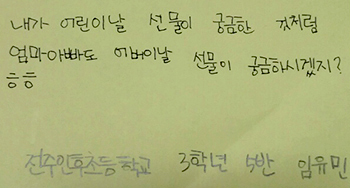 내가 어린이날 선물이 궁금한 것처럼
엄마아빠도 어버이날 선물이 궁금하시겠지?
ㅎㅎ
전주인후초등학교 3학년 5반 임유민